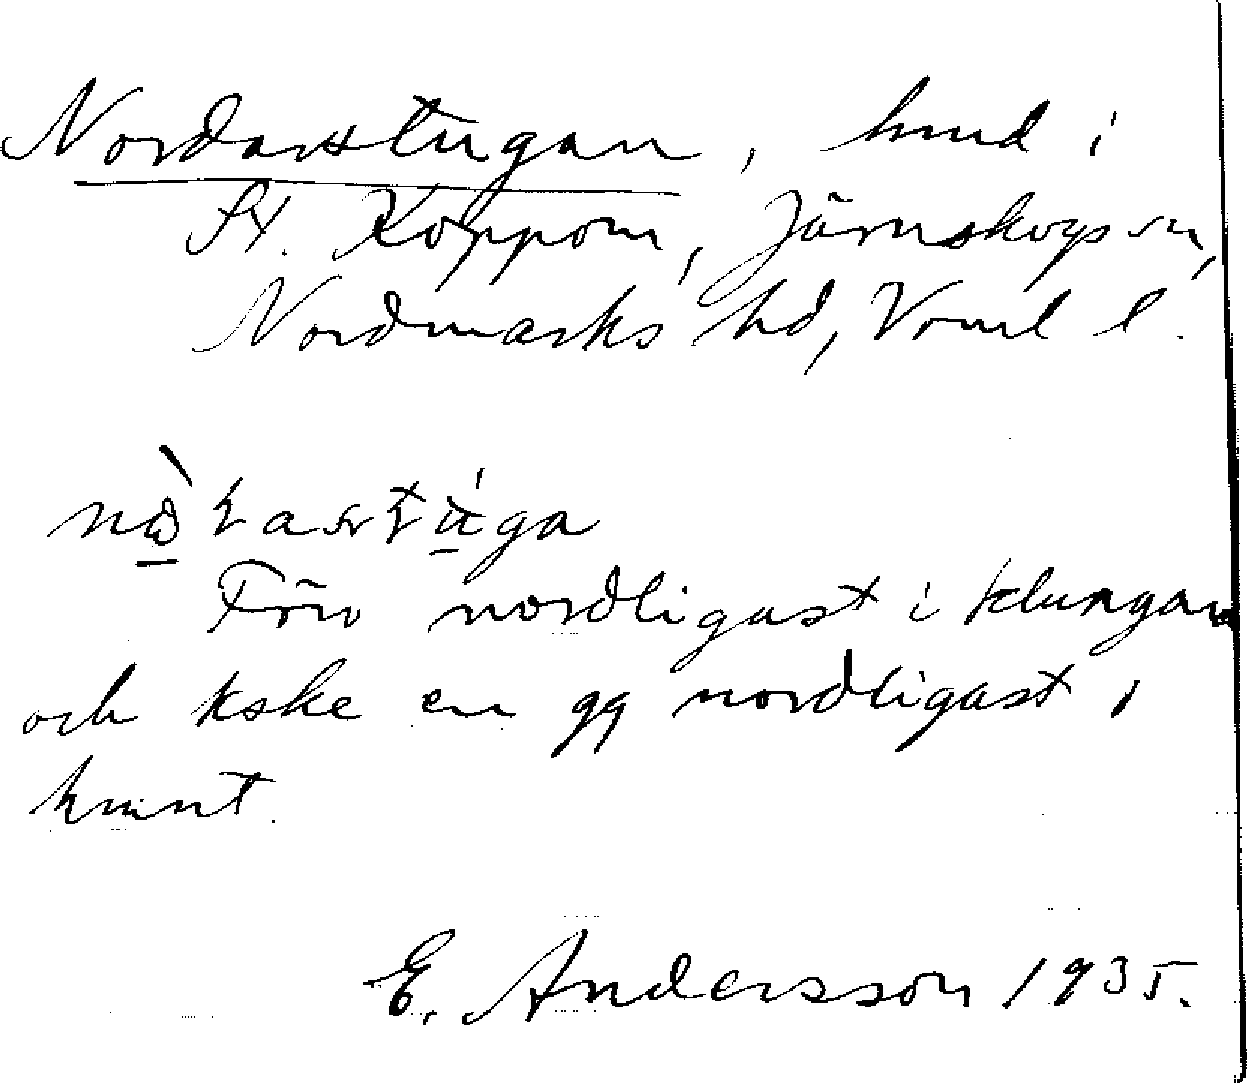 Nordarstugan, hmd i
St. Koppom, Järnskogs sn,
Nordmarks hd, Vrml l.
Förr nordligast i klungan
och kske en gg nordligast i
hmnt.
E. Andersson 1935.